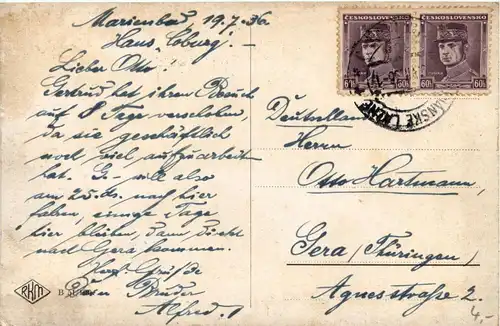 Marienbad 19.7.36
Haus "Coburg".-
Lieber Otto!
Gertrud hat ihren Besuch
auf 8 Tage verschoben,
da sie geschäftlich
noch viel aufzuarbeiten
hat. G- will also
am 25. ds. nach hier
fahren, einige Tage
hier bleiben, dann direkt
nach Gera kommen.
Herzl. Grüße
Dein Bruder
Alfred.
ČESKOSLOVENSKO
60h 60h
ČESKOSLOVENSKO
60h 60h
Deutschland
Herrn
Otto Hartmann,
Gera (Thüringen)
Agnesstraße 2.
4,-
RKM
B